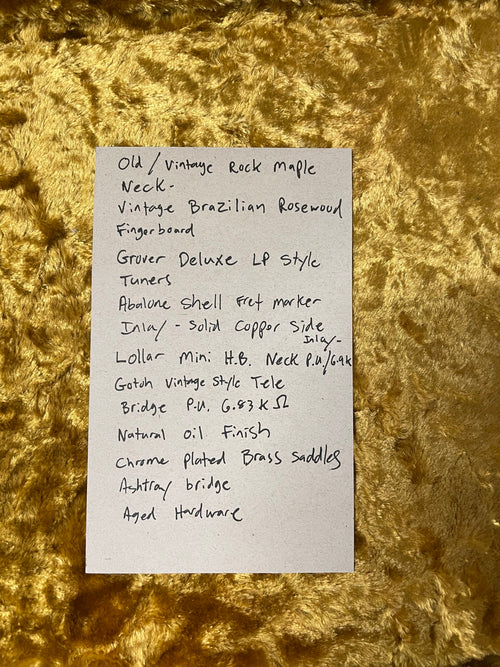 Old / Vintage Rock Maple
Neck-
Vintage Brazilian Rosewood
Fingerboard
Grover Deluxe LP Style
Tuners
Abalone Shell Fret marker
Inlay - Solid Copper Side
Inlay-
Lollar Mini H.B. Neck P.U/6.9K
Gotoh Vintage Style Tele
Bridge P.U. 6.83 K Ω
Natural Oil Finish
Chrome Plated Brass Saddles
Ashtray bridge
Aged Hardware